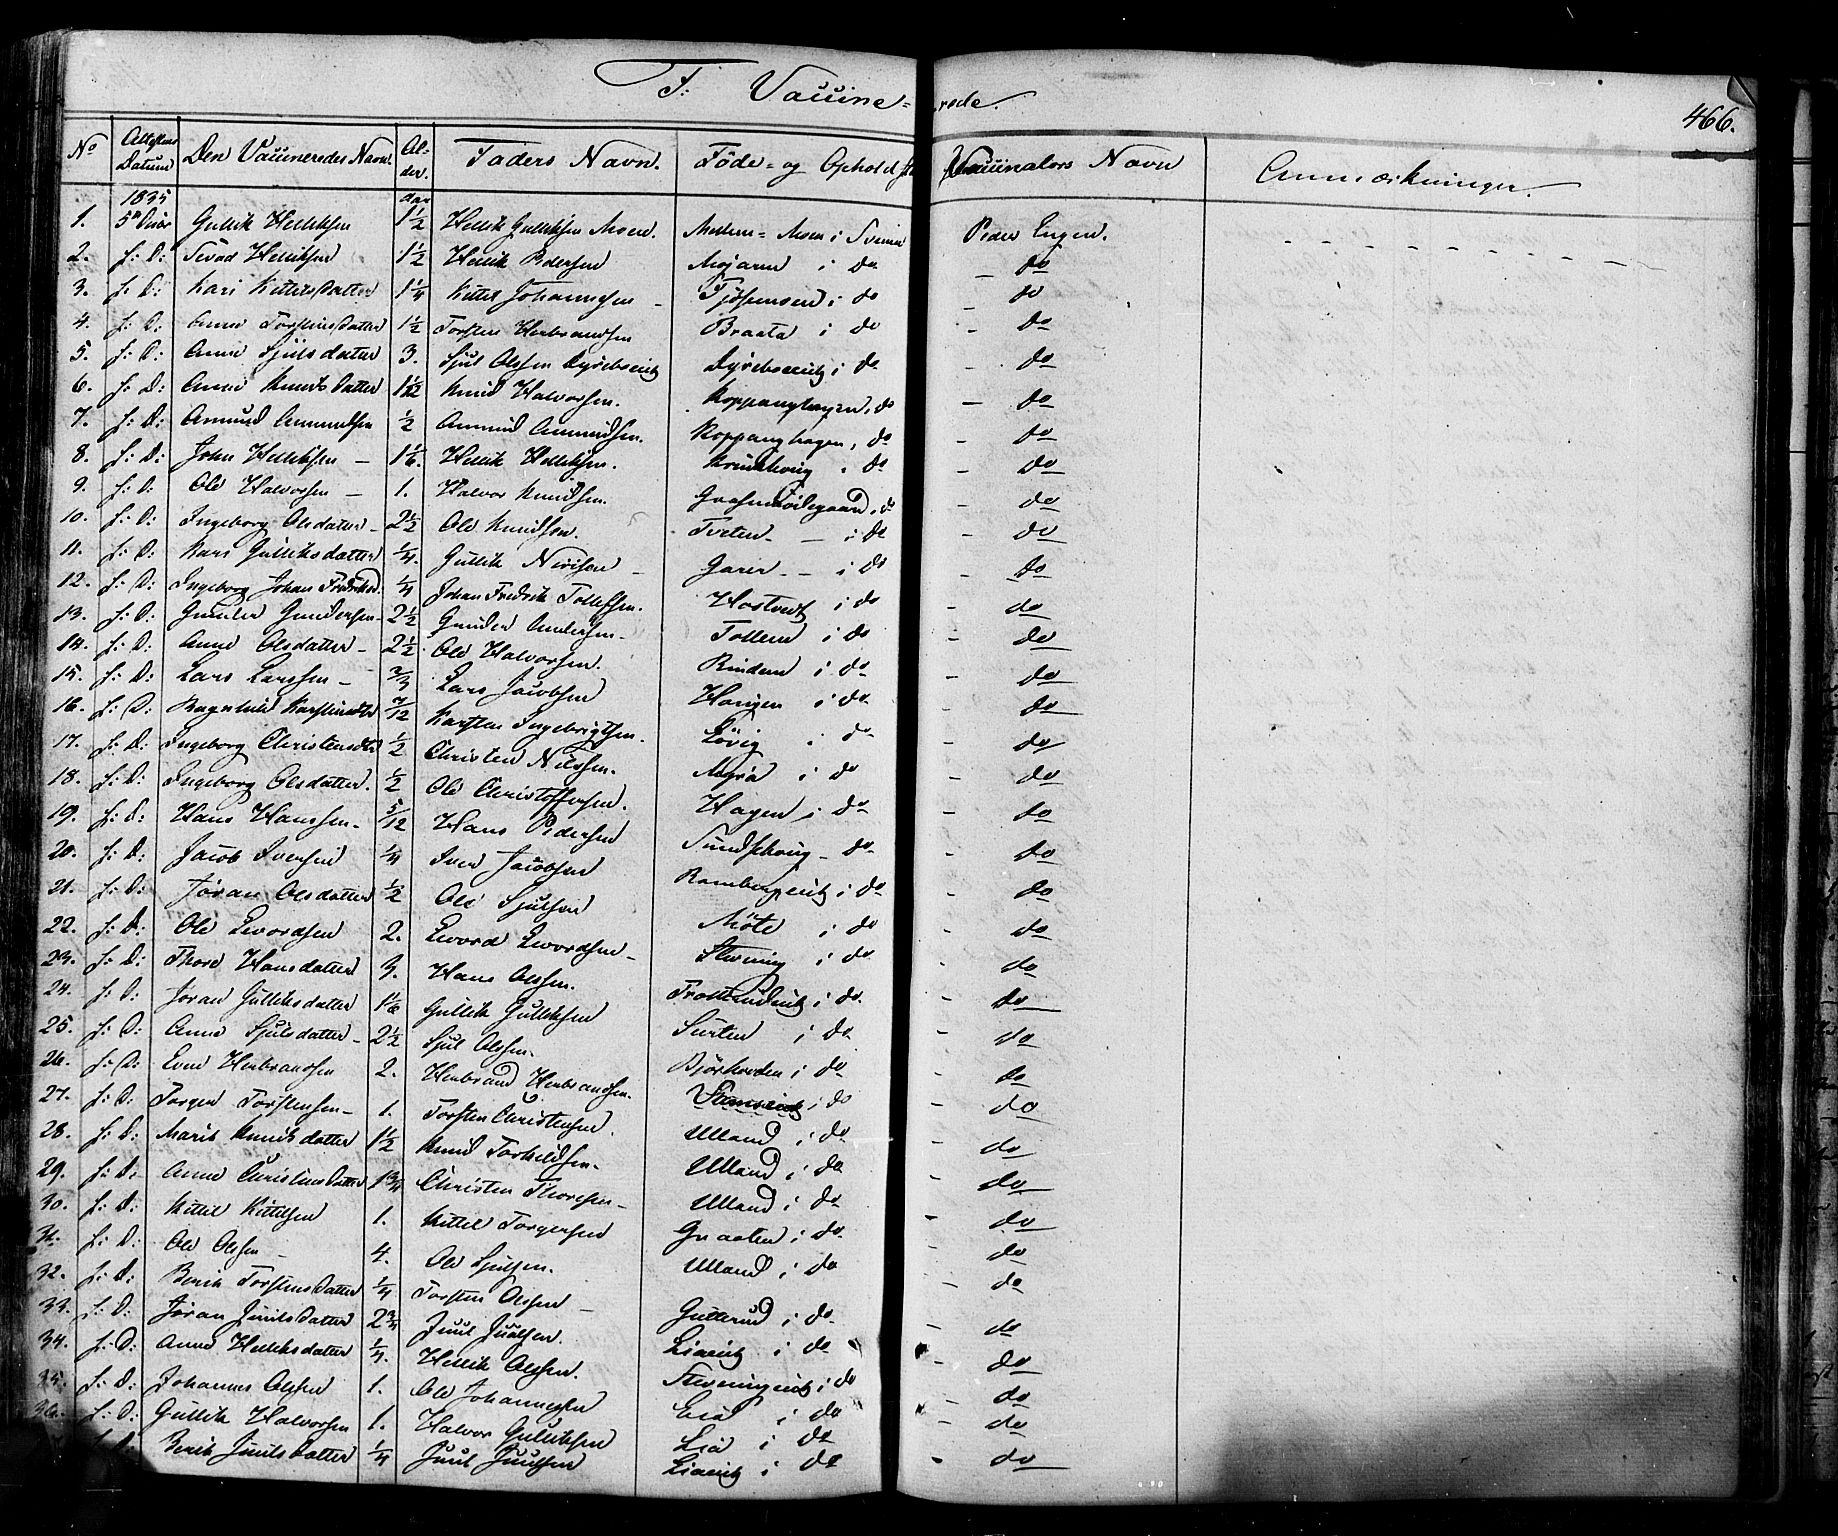 F: Vaccine=rede. 466.
No Attestens Datum Den Vaccineredes Navn. Al-der. Faders Navn. Føde- og Opholdst Vaccinators Navn Anmærkninger.
1835 Aar
1. 5te Gullik Helliksen 1 1/2 Hellik Gulliksen Moen. Moen i Peder Engen.
2. s: D: Helliksen 1 1/2 Hellik Pedersen i do - do
3. s: D: Kari Kittelsdatter 1 1/4 Kittel Johannesen - i do - do
4. s: D: Anne Torstensdatter 1 1/2 Torsten Herbrandsen Braata i do - do
5. s: D: Anne Sjulsdatter 3. Sjul Olssen Dyrebseiet Dyrebseiet i do - do
6. s: D: Anne Knudsdatter 1 1/12 Knud Halvorsen. Koppanghagen i do - do
7. s: D: Amund Amundsen 1/2 Amund Amundsen. Koppanghagen i do - do
8. s: D: John Helliksen - 1 1/6. Hellik Helliksen. i do - do
9. s: D: Ole Halvorsen - 1. Halvor Knudsen. i do - do
10. s: D: Ingeborg Olsdatter - 2 1/2 Ole Knudsen. Tveten - i do - do
11. s: D: Kari Gulliksdatter 1/4. Gullik Nirisen - Garer - i do - do
12. s: D: Ingeborg Johan Fredriksd. 1/4 Johan Fredrik Tollefsen. Hostvedt i do - do
13. s: D: Gunder Gundersen - 2 1/2 Gunder Andersen - i do - do
14. s: D: Anne Olsdatter - 2 1/2 Ole Halvorsen. Rindem i do - do
15. s: D: Lars Larssen - 2/3 Lars Jacobsen Haugen i do - do
16. s: D: Ragnhild Karstensdtr 7/12 Karsten Ingebrigtsen. Løvig i do - do
17. s: D: Ingeborg Christensdtr 1/2 Christen Nilssen. Myra i do - do
18. s: D: Ingeborg Olsdatter. 1/2 Ole Christoffersen. Hagen i do - do
19. s: D: Hans Hanssen - 5/12 Hans Pedersen - do - do
20. s: D: Jacob Iversen 1/4 Iver Jacobsen Rambergseiet i do - do
21. s: D: Jøran Olsdatter 1/2 Ole Sjulsen Møte i do - do
22. s: D: Ole Livordsen 2. Livord Livordsen - Stevning i do - do
23. s: D: Thore Hansdatter 3. Hans Olssen. i do - do
24. s: D: Jøran Gulliksdatter 1 1/6 Gullik Gulliksen Surten i do - do
25. s: D: Anne Sjulsdatter - 2 1/2 Sjul Olssen. Bjørhovden i do - do
26. s: D: Even Herbrandsen 2. Herbrand Herbrandsen. i do - do
27. s: D: Torgen Torstensen - 1. Torsten Christensen. Ulland i do - do
28. s: D: Marie Knudsdatter 1 1/2 Knud Torkildsen. Ulland i do - do
29. s: D: Anne Christensdatter 1 3/4 Christen Thoresen - Ulland i do - do
30. s: D: Kittel Kittelsen 1. Kittel Torgersen Graaten i do - do
31. s: D: Ole Olssen - 4. Ole Sjulsen. Ulland i do - do
32. s: D: Berit Torstensdatter 1/4 Torsten Olssen - Gutterud i do - do
33. s: D: Jøran Juulsdatter 2 3/4 Juul Juulsen. Liaeiet i do - do
34. s: D: Anne Helliksdatter 1/4. Hellik Olssen. Stevningseiet i do - do
35. s: D: Johannes Olssen 1. Ole Johannesen i do - do
36. s: D: Gullik Halvorsen 1. Halvor Gulliksen Lia i do - do
Berit Juulsdatter 1/4 Juul Juulsen Liaeiet i do - do